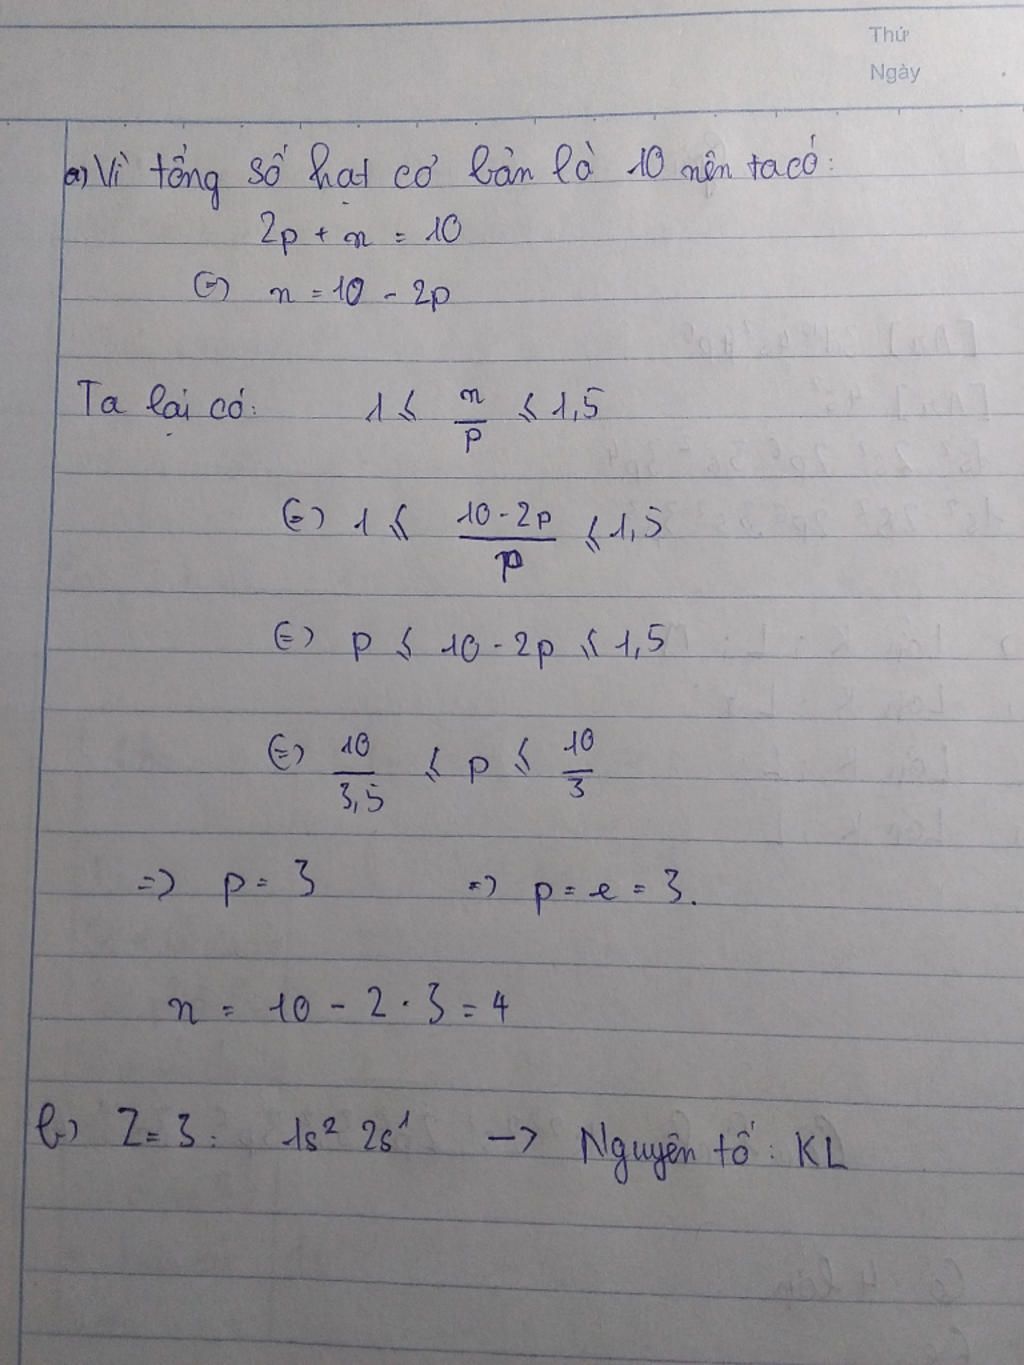 Thứ
Ngày
a) Vì tổng số hạt cơ bản là 10 nên ta có:
2p + n = 10
(=) n = 10 - 2p
Ta lại có: 1 ≤ n/p ≤ 1,5
(=) 1 ≤ (10 - 2p)/p ≤ 1,5
(=) p ≤ 10 - 2p ≤ 1,5
(=) 10/3,5 ≤ p ≤ 10/3
=) p = 3 =) p = e = 3.
n = 10 - 2 . 3 = 4
b) Z = 3 : 1s² 2s¹ -> Nguyên tố : KL